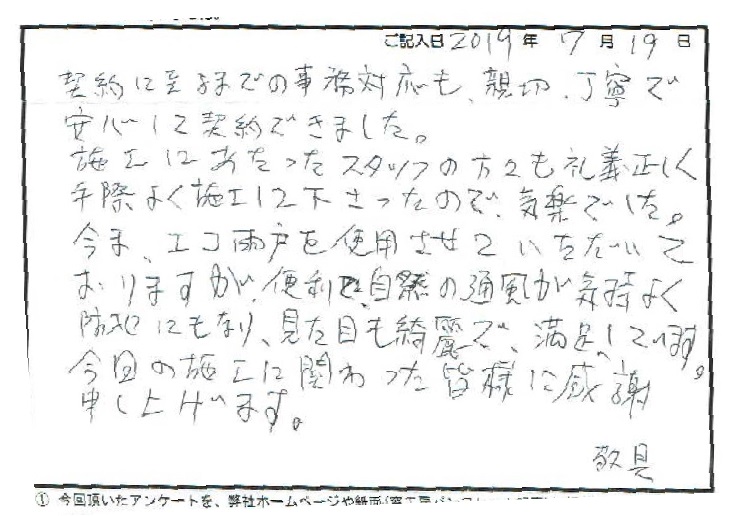 ご記入日 2019 年 7 月 19 日
契約に至るまでの事務対応も、親切、丁寧で
安心して契約できました。
施工にあたったスタッフの方々も礼義正しく
手際よく施工して下さったので、気楽でした。
今ま、エコ雨戸を使用させていただいて
おりますが、便利で自然の通風が気持よく
防犯にもなり、見た目も綺麗で、満足しています。
今回の施工に関わった皆様に感謝
申し上げます。
敬具
① 今回頂いたアンケートを、弊社ホームページや紙面